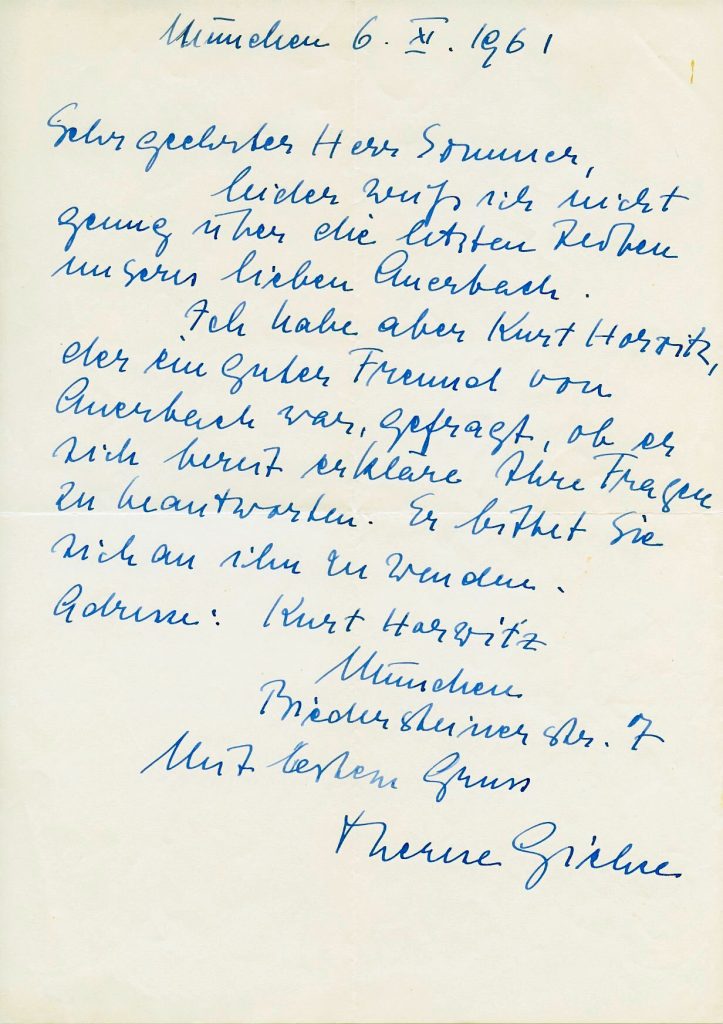 München 6. XI. 1961
Sehr geehrter Herr Sommer,
leider weiß ich nicht
genug über die letzten
unseres lieben Auerbach.
Ich habe aber Kurt Horwitz,
der ein guter Freund von
Auerbach war, gefragt, ob er
sich bereit erkläre Ihre Fragen
zu beantworten. Er bittet Sie
sich an ihn zu wenden.
Adresse: Kurt Horwitz
München
Biedersteinerstr. 7
Mit bestem Gruss
Therese Giehse